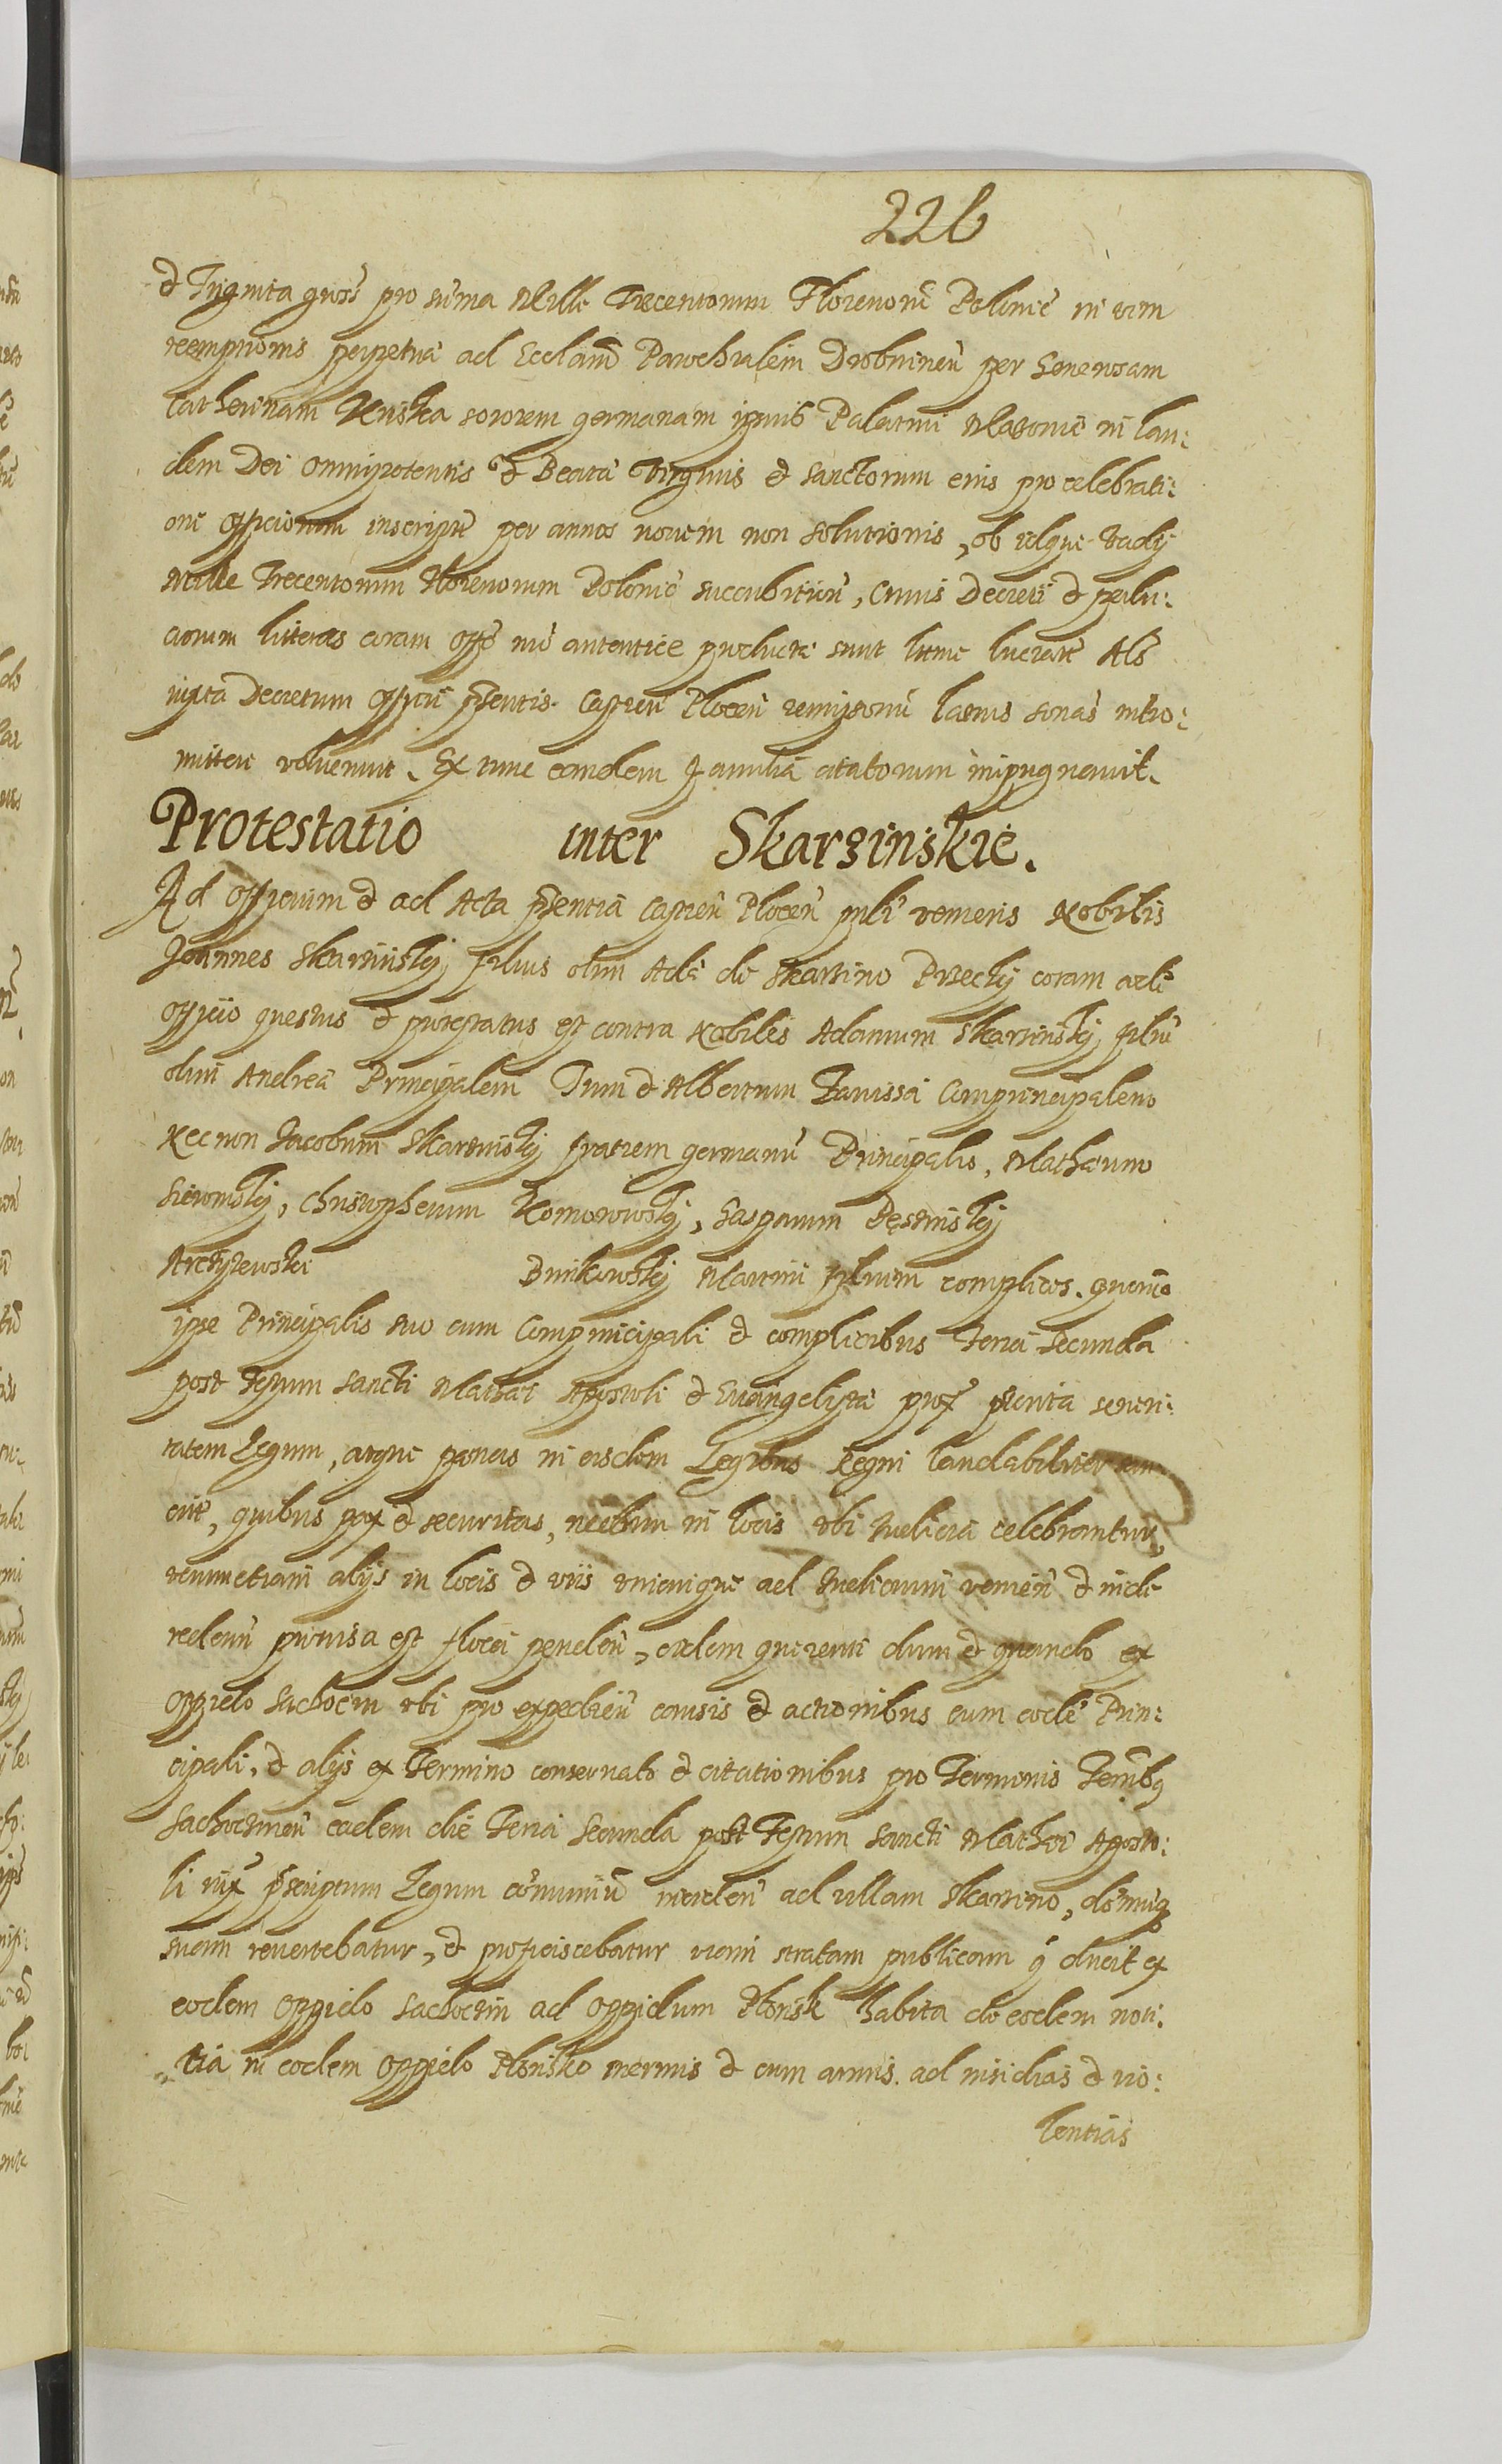 226
et Triginta gross pro summa Mille Trecentorum Florenorū Polonic in vim
reemptionis perpetuā ad Ecclam Parochialem Drobninen̄ per Generosam
Catherinam Kriska sororem germanam ipsius Palatini Masoviē in lau:
dem Dei omnipotentis et Beatā Virginis et sanctorum eius pro celebrati:
one officiorum inscriptē per annos novem non solutionis, ob idque vadij
Mille Trecentorum Florenorum Polonic succubitiōn, Cuius Decreti et
arum litteras coram offo no autentice producte sunt Als
iuxta Decretum officij pn̄tis Castren̄ Plocen̄ remissionū latius sonās intro:
mittere voluerunt. Ex tunc eandem familia citatorum impugnavit.
Protestatio inter Skarzinskie.
Ad officium et ad Acta pn̄tia Castren̄ Plocen̄ veniens Nobilis
Joannes Skarzinskÿ filius olim Adā de Skarzino Przeckÿ coram eodē
officio questus et protestatus est contra Nobiles Adamum Skarzinskÿ filiū
olim Andreā Principalem Tum et Albertum Zavissa Comprincipalem
Nec non Jacobum Skarzinskÿ fratrem germanū Principalis, Mathæum
Sieromskÿ, Christopherum Komorowskÿ, Gasparum Pęskinskÿ
Arctyzewski Bunkowskÿ Martini filium complices. quomo
ipse Principalis suo cum Comprincipali et complicibus Feria Secunda
post Festum Sancti Mathæi Apostoli et Evangelistā prox pterita severi:
tatem Legum, atque penas in eisdem Legibus Regni laudabiliter san
citē, quibus pax et securitas, nedum in locis ubi Iudicia celebrantur,
verumetiam alijs in locis et viis unicuique ad Iudicium venien̄ et inde
redeun̄ provisa est flocci penden̄, eidem querenti dum et quando ex
oppido Sachocin ubi pro expedien̄ causis et actionibus cum eodē Prin:
cipali, et alijs ex Termino conservato et citationibus pro Terminis Terribq
Sachocinen̄ eadem die Feria Secunda post Festum Sancti Mathæi Aposto:
li iux pscriptum Legum cōmuniū inciden̄ ad villam Skarzino, domūq
suam revertebatur, et proficiscebatur viam stratam publicam q ducit ex
eodem oppido Sachoczin ad oppidum Plonsk habita de eodem noti:
tia in eodem oppido Plonsko inermis et cum armis ad insidias et vio:
lentias